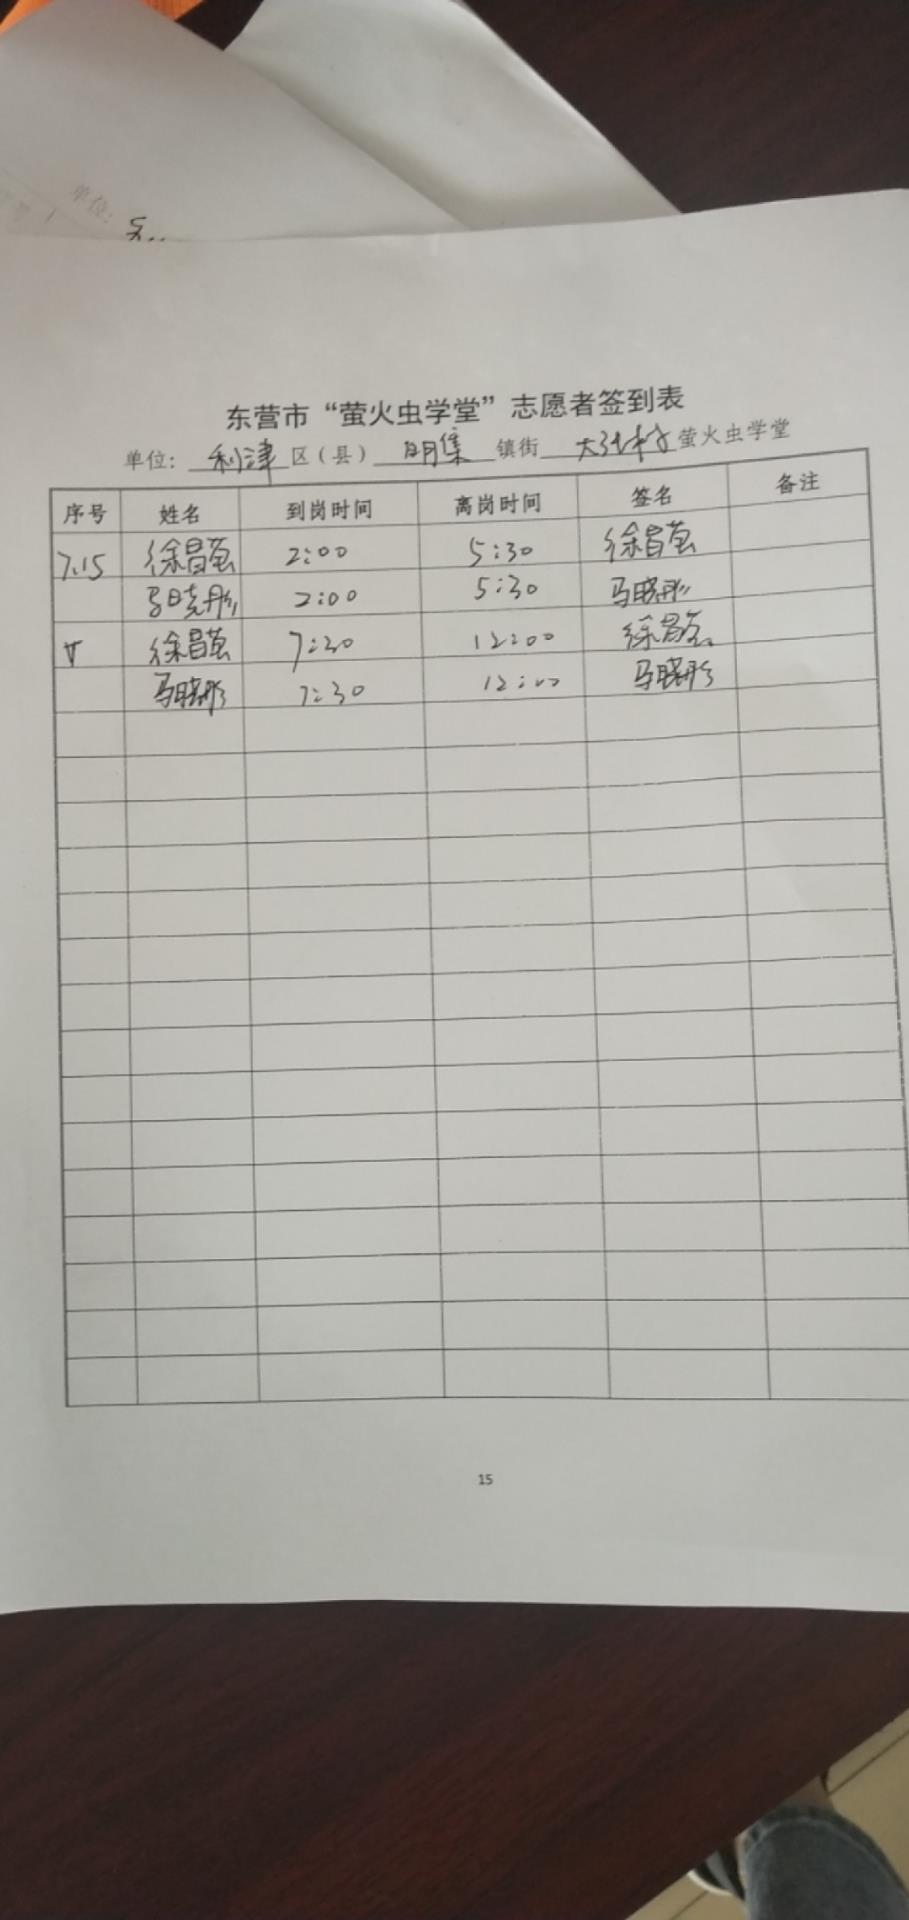 单位:
东营市“萤火虫学堂”志愿者签到表
单位: 利津 区(县) 明集 镇街 大张村 萤火虫学堂
序号 姓名 到岗时间 离岗时间 签名 备注
7.15 徐昌萤 2:00 5:30 徐昌萤
马晓彤 2:00 5:30 马晓彤
徐昌萤 7:30 12:00 徐昌萤
马晓彤 7:30 12:00 马晓彤
15